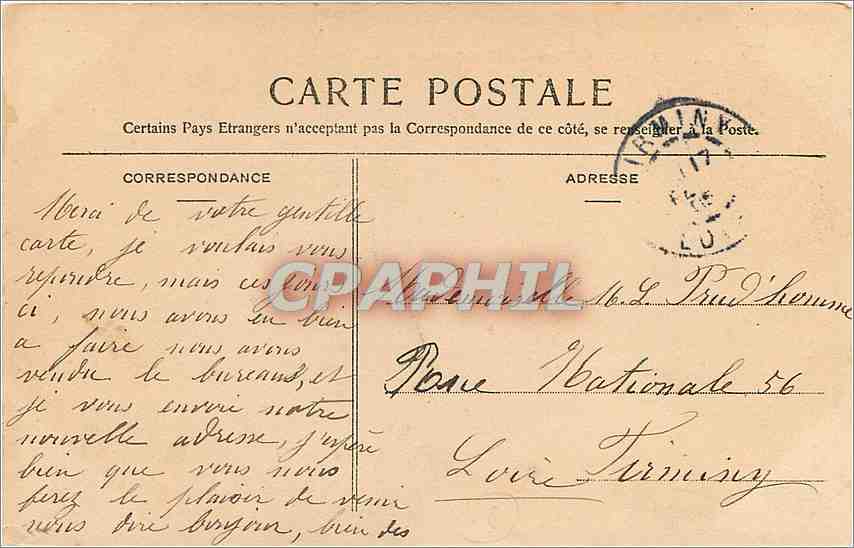 CARTE POSTALE
Certains Pays Etrangers n'acceptant pas la Correspondance de ce côté, se renseigner à la Poste.
CORRESPONDANCE
Merci de votre gentille
carte, je voulais vous
repondre, mais ces jours
ci nous avons eu bien
a faire nous avons
vendu le bureau, et
je vous envoie notre
nouvelle adresse, j'espère
bien que vous nous
ferez le plaisir de venir
nous dire bonjour, bien des
ADRESSE
Mademoiselle M. L. Prud'homme
Rue Nationale 56
Loire Firminy
FIRMINY
17
LOIRE
CPAPHIL